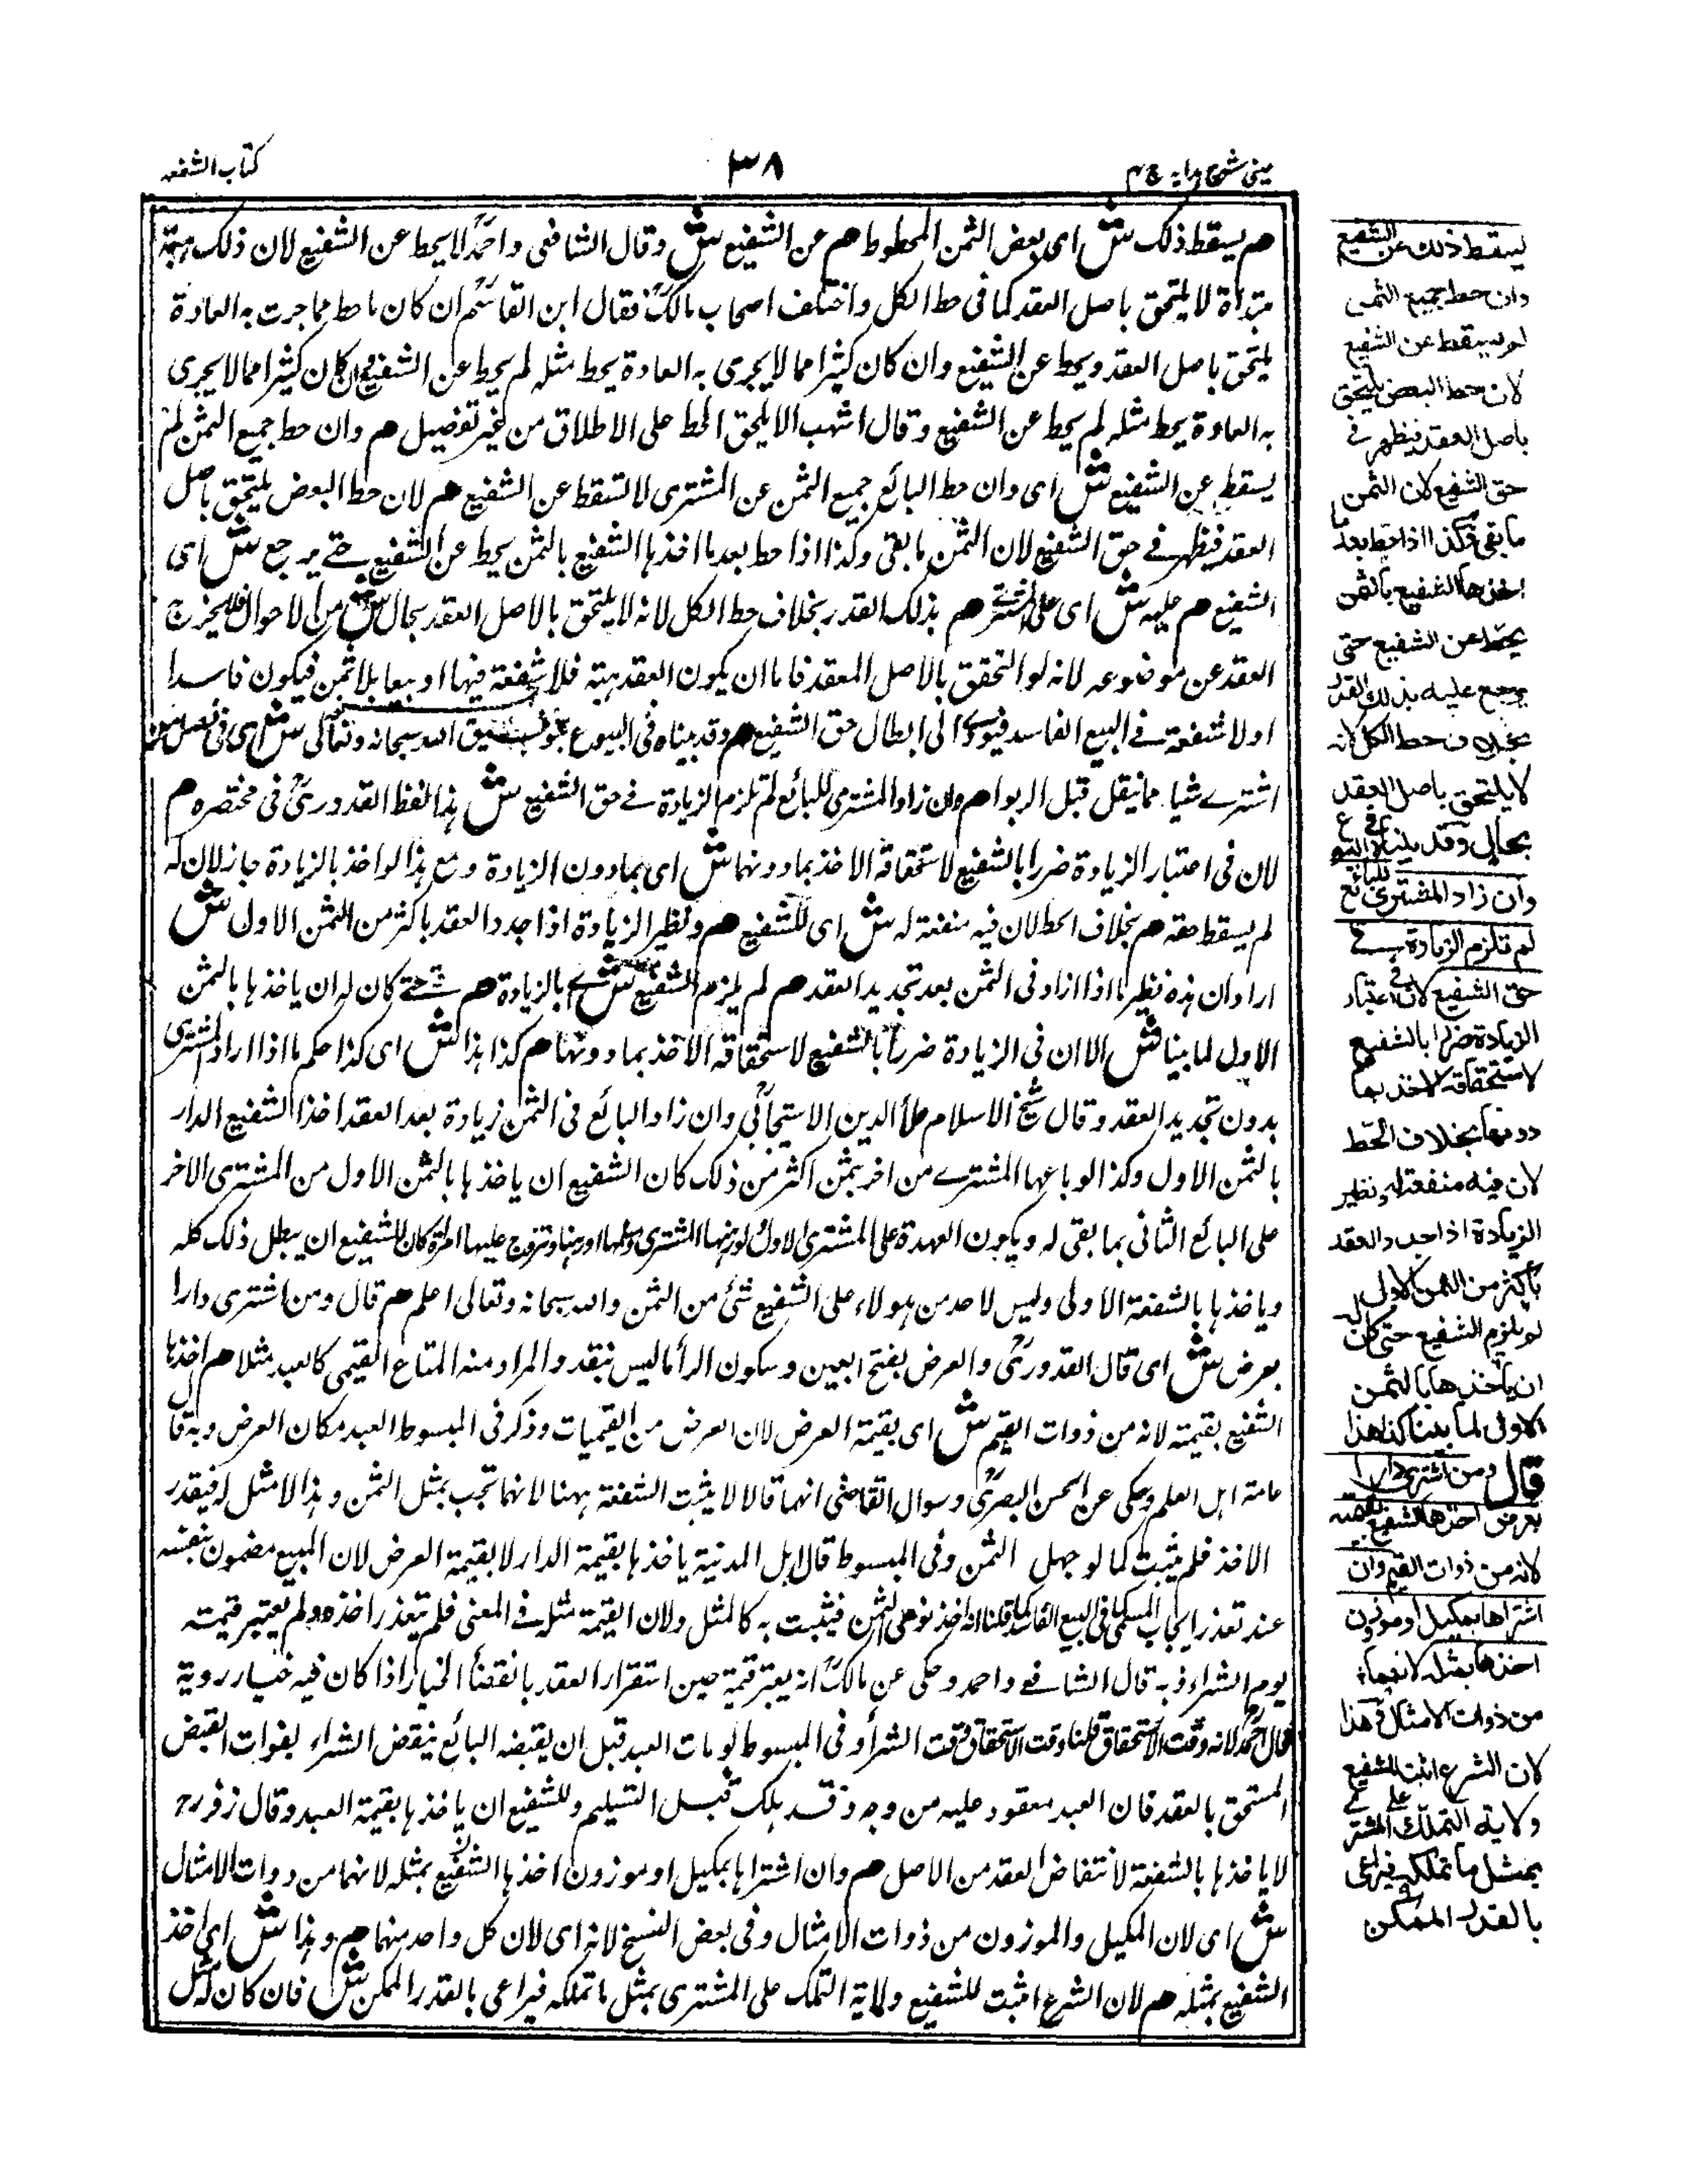 عینی شرح ہدایہ ج ۳
۳۸
کتاب الشفعہ
ھم یسقط ذلک ش ای بعض الثمن المحطوط ھم عن الشفیع ش وقال الشافعی واحمدؒ لا یحط عن الشفیع لان ذلک ہبۃ
مبتدأۃ لا یلتحق باصل العقد کما فی حط الکل واختلف اصحاب مالکؒ فقال ابن القاسمؒ ان کان ما حط مما جرت بہ العادۃ
یلتحق باصل العقد ویحط عن الشفیع وان کان کثیرا مما لا یجری بہ العادۃ یحط مثلہ لم یحط عن الشفیع وان کان کثیرا مما لا یجری
بہ العادۃ یحط مثلہ لم یحط عن الشفیع وقال اشہب الا یلحق الحط علی الاطلاق من غیر تفصیل ھم وان حط جمیع الثمن لم
یسقط عن الشفیع ش ای وان حط البائع جمیع الثمن عن المشتری لا تسقط عن الشفیع ھم لان حط البعض یلتحق باصل
العقد فیظہر فے حق الشفیع لان الثمن ما بقی وکذا اذا حط بعد ما اخذہا الشفیع بالثمن یحط عن الشفیع حتے یرجع ش ای
الشفیع ھم علیہ ش ای علی المشترے ھم بذلک القدر بخلاف حط الکل لانہ لا یلتحق بالاصل العقد بحال ش من الاحوال فلا یخرج
العقد عن موضوعہ لانہ لو التحقق بالاصل العقد فاما ان یکون العقد ہبتہ فلا شفعۃ فیہا او بیعا بلا ثمن فیکون فاسدا
اولا شفعۃ فے البیع الفاسد فیودی الی ابطال حق الشفیع ھم وقد بیناہ فی البیوع ش بتوفیق اللہ سبحانہ وتعالی ای فی فصل من
اشترے شیا مما ینقل قبل الربوا ھم وان زاد المشتری للبائع لم تلزم الزیادۃ فے حق الشفیع ش ہذا لفظ القدوریؒ فی مختصرہ ھم
لان فی اعتبار الزیادۃ ضررا بالشفیع لاستحقاقہ الاخذ بما دونہا ش ای بما دون الزیادۃ ومع ہذا لو اخذ بالزیادۃ جاز لان لہ
لم یسقط حقہ ھم بخلاف الحط لان فیہ منفعتہ لہ ش ای للشفیع ھم ونظیر الزیادۃ اذا جدد العقد باکثر من الثمن الاول ش
اراد ان ہذہ نظیر ما اذا ازاد فی الثمن بعد تجدید العقد ھم لم یلزم الشفیع ش بالزیادۃ ھم حتے کان لہ ان یاخذہا بالثمن
الاول لما بینا ش الا ان فی الزیادۃ ضرراً بالشفیع لاستحقاقہ الاخذ بما دونہا ھم کذا ہذا ش ای کذا حکم ما اذا اراد المشتری
بدون تجدید العقد وقال شیخ الاسلام علأ الدین الاسبیجابیؒ وان زاد البائع فی الثمن زیادۃ بعد العقد اخذ الشفیع الدار
بالثمن الاول وکذا لو باعہا المشترے من اخر بثمن اکثر من ذلک کان الشفیع ان یاخذہا بالثمن الاول من المشتری الاخر
علی البائع الثانی بما بقی لہ ویکون العہدۃ علی المشتری الاول لو رہنہا المشتری وسلمہا او رہنہا وتزوج علیہا امراۃ کان للشفیع ان یبطل ذلک کلہ
ویاخذہا بالشفعۃ الاولی ولیس لاحد من ہولاء علی الشفیع شئ من الثمن واللہ سبحانہ وتعالی اعلم ھم قال ومن اشتری دارا
بعرض ش ای قال القدوریؒ والعرض بفتح العین وسکون الرأ ما لیس بنقد والمراد منہ المتاع القیمی کالعبد مثلا ھم اخذہا
الشفیع بقیمتہ لانہ من ذوات القیم ش ای بقیمۃ العرض لان العرض من القیمیات وذکر فی المبسوط العبد مکان العرض وبہ قال
عامۃ اہل العلم وحکی عن الحسن البصریؒ وسوار القاضی انہما قالا لا یثبت الشفعۃ ہہنا لانہا تجب بمثل الثمن وہذا لا مثل لہ فیقدر
الاخذ فلم یثبت کما لو جہل الثمن وفی المبسوط قال اہل المدینۃ یاخذہا بقیمۃ الدار لا بقیمۃ العرض لان المبیع مضمون بنفسہ
عند تعذر ایجاب المسمی کما فی البیع الفاسد قلنا انہ اخذ نوعی الثمن فیثبت بہ کالمثل ولان القیمۃ مثلہ فے المعنی فلم یتعذر اخذہ ولم یعتبر قیمتہ
یوم الشراء وبہ قال الشافعے واحمد وحکی عن مالکؒ انہ یعتبر قیمتہ حین استقرار العقد بانقضأ الخیار اذا کان فیہ خیار رویۃ
قال احمدؒ لانہ وقت الاستحقاق قلنا وقت الاستحقاق وقت الشرأ وفی المبسوط لو مات العبد قبل ان یقبضہ البائع ینقض الشراء بفوات القبض
المستحق بالعقد فان العبد معقود علیہ من وجہ وقد ہلک قبل التسلیم وللشفیع ان یاخذہا بقیمۃ العبد وقال زفرؒ
لا یاخذہا بالشفعۃ لانتفاض العقد من الاصل ھم وان اشتراہا بمکیل او موزون اخذہا الشفیع بمثلہ لانہما من ذوات الامثال
ش ای لان المکیل والموزون من ذوات الامثال وفی بعض النسخ لانہ ای لان کل واحد منہما ھم وہذا ش ای اخذ
الشفیع بمثلہ ھم لان الشرع اثبت للشفیع ولایۃ التملک علی المشتری بمثل ما تملکہ فیراعی بالقدر الممکن ش فان کان لہ مثل
یسقط ذلك عن الشفیع
وان حط جمیع الثمن
لم یسقط عن الشفیع
لان حط البعض یلتحق
باصل العقد فیظهر فی
حق الشفیع لان الثمن
ما بقی وکذا اذا حط بعد ما
اخذها الشفیع بالثمن
یحط عن الشفیع حتی
یرجع علیه بذلك القدر
بخلاف حط الکل لانه
لا یلتحق باصل العقد
بحال وقد بیناه فی البیوع
وان زاد المشتری للبائع
لم تلزم الزیادة فے
حق الشفیع لان فی اعتبار
الزیادة ضررا بالشفیع
لاستحقاقه الاخذ بما
دونها بخلاف الحط
لان فیه منفعة له ونظیر
الزیادة اذا جدد العقد
باکثر من الثمن الاول
لم یلزم الشفیع حتی کان له
ان یاخذها بالثمن
الاول لما بینا کذا هذا
قال ومن اشتری دارا
بعرض اخذها الشفیع بقیمته
لانه من ذوات القیم وان
اشتراها بمکیل او موزون
اخذها بمثله لانهما
من ذوات الامثال وهذا
لان الشرع اثبت للشفیع
ولایة التملك علی المشتری
بمثل ما تملکه فیراعی
بالقدر الممکن